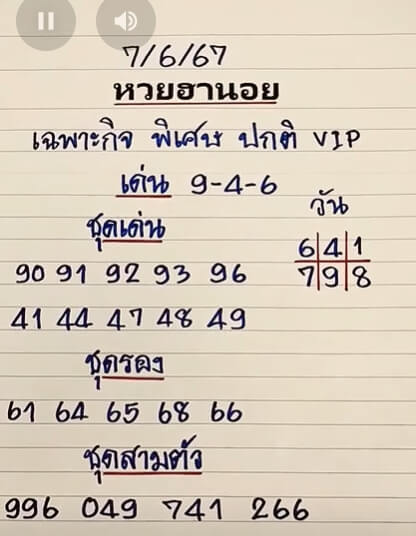 7/6/67
หวยฮานอย
เฉพาะกิจ พิเศษ ปกติ VIP
เด่น 9-4-6
วัน
ชุดเด่น
6|4|1
7|9|8
90 91 92 93 96
41 44 47 48 49
ชุดรอง
61 64 65 68 66
ชุดสามตัว
996 049 741 266